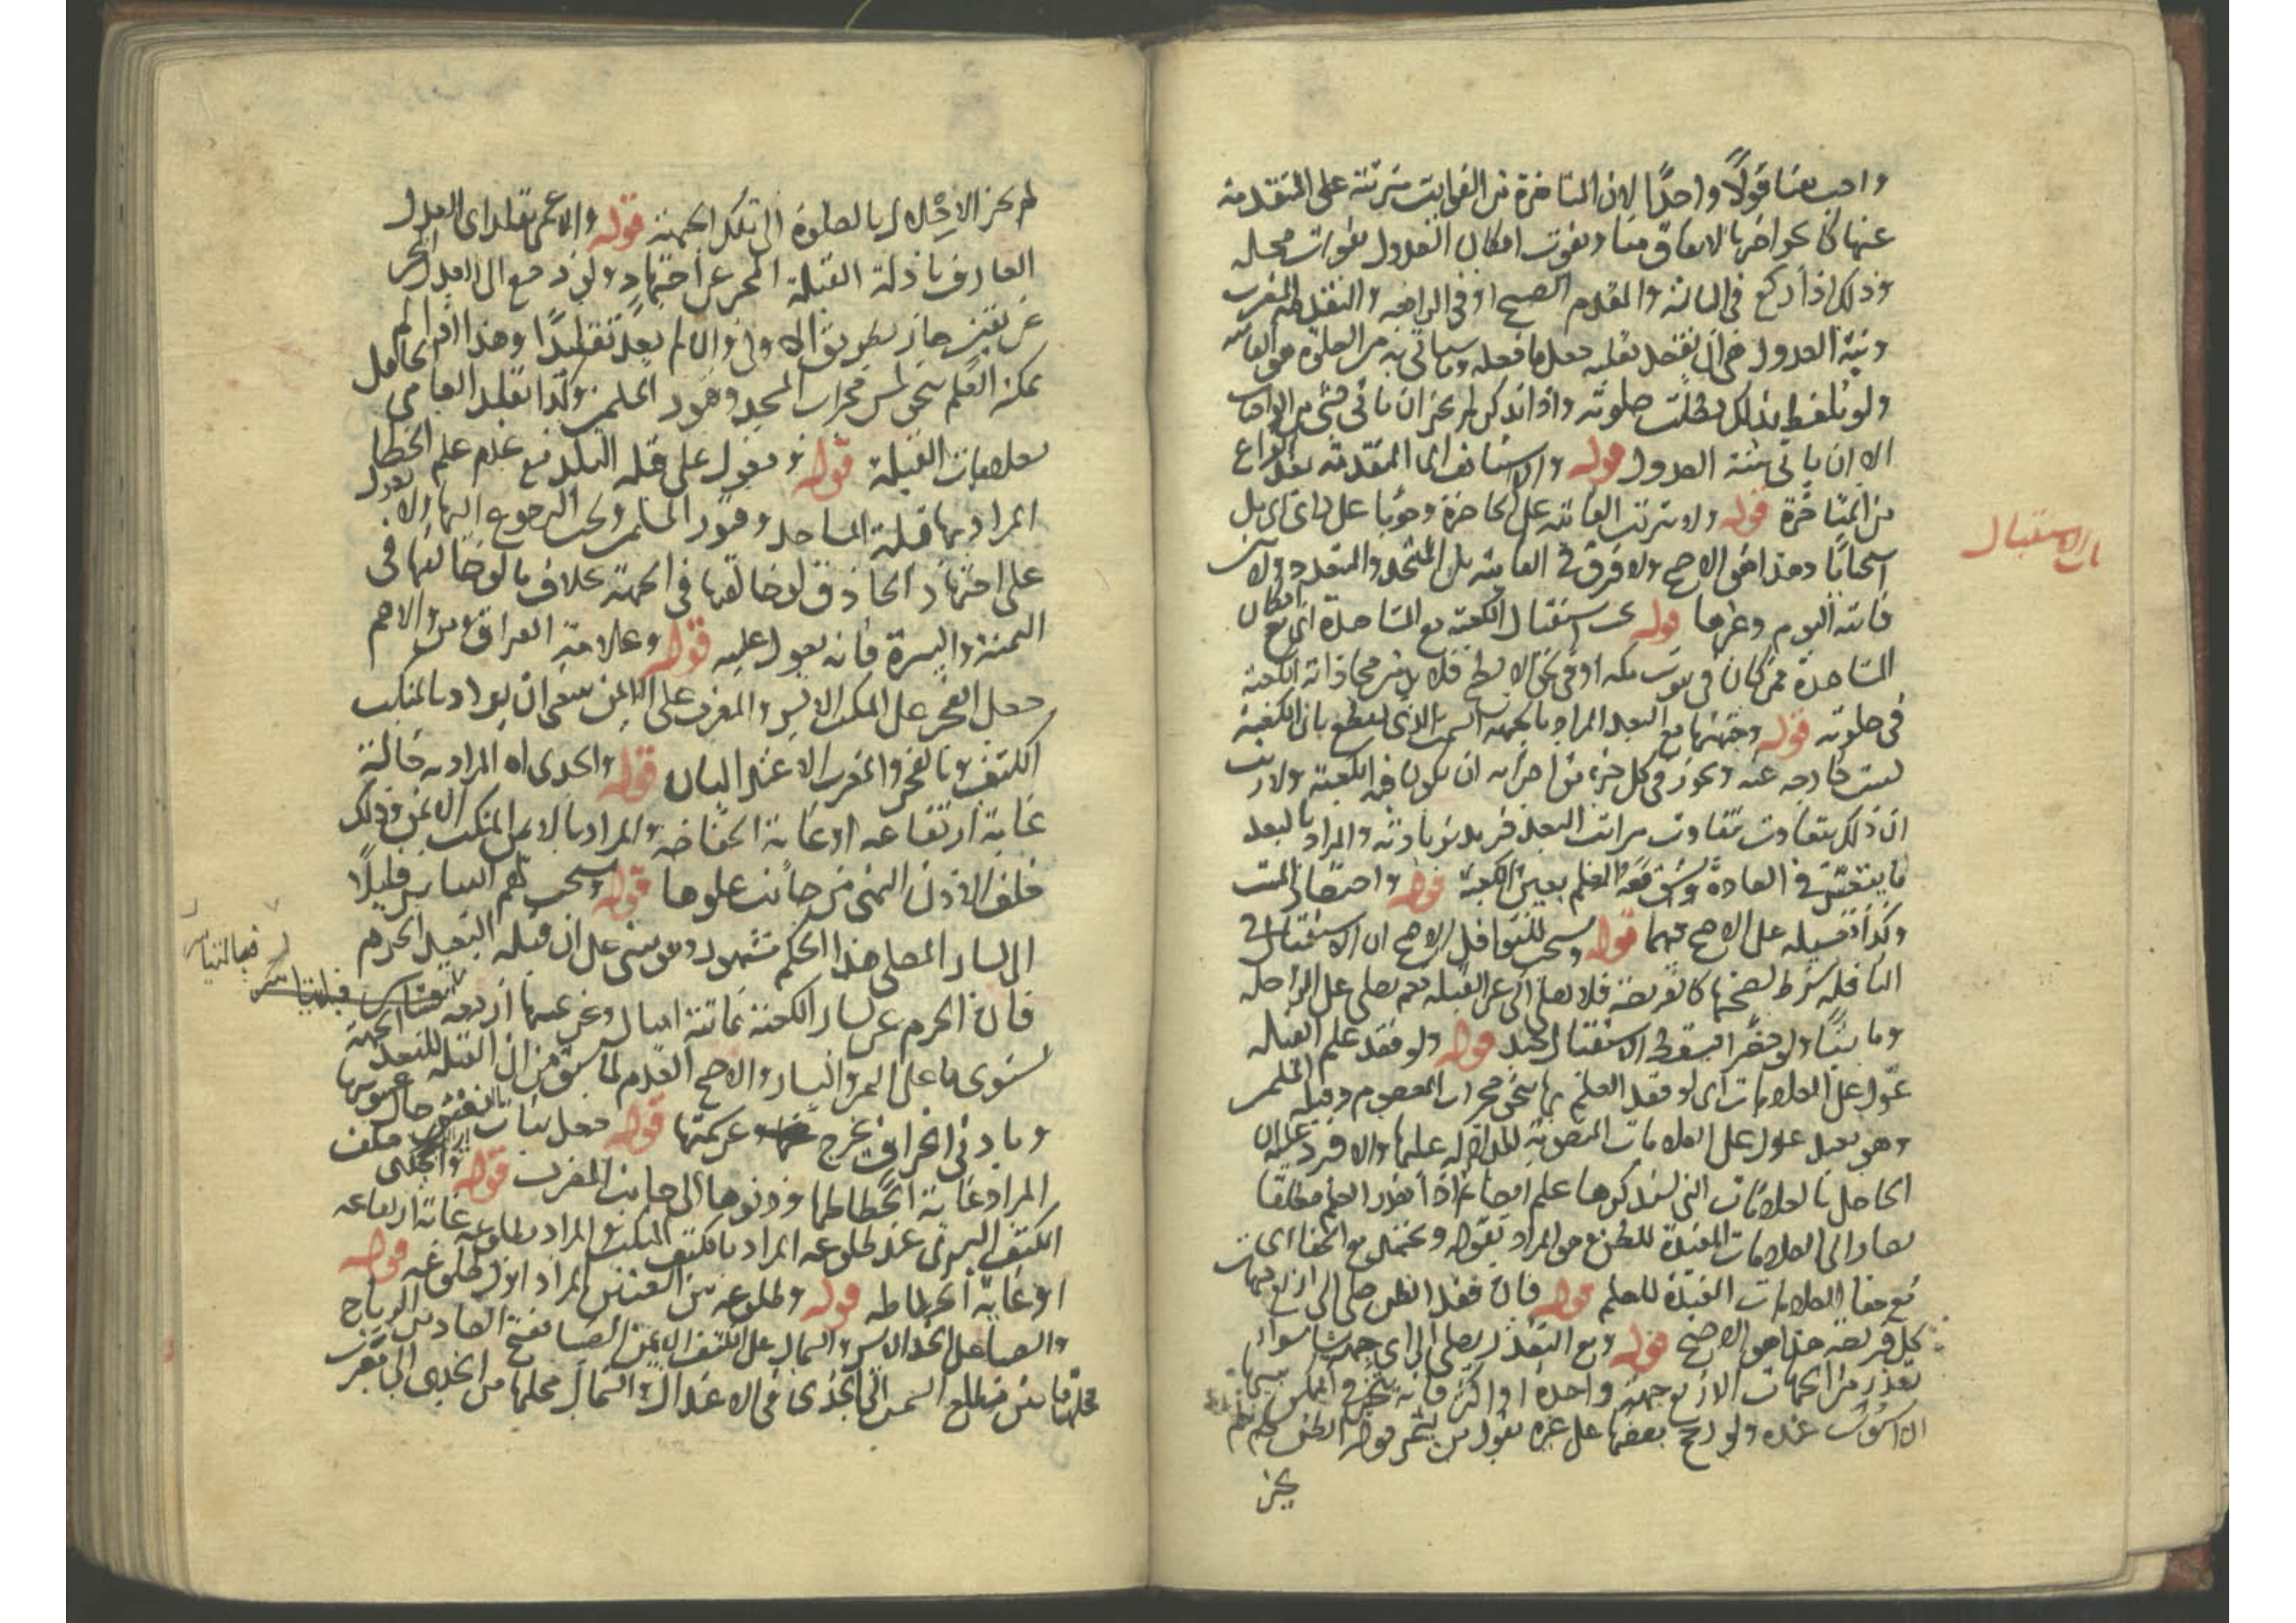 واجب هنا قولًا واحدًا لان المتاخرة من الفوايت مترتبة على المتقدمة
عنها كما نحو اخرها لاتفاق هنا ويفوت امكان العدول بفوات محله
وذلك اذا ركع في الثالثة والمقدم الصبح او في الرابعة والمتقدمة المغرب
ونية العدول هي ان يقصد بقلبه جعل ما فعله وما ياتي به من الصلوة هي الفايتة
ولو تلفظ بذلك بطلت صلوته واذا تذكر لم يجز ان ياتي بشئ من الواجبات
الا ان ياتي بنية العدول قوله والا استانف اي المتقدمة بعد الفراغ
من المتاخرة قوله ولا تترتب الفايتة على الحاضرة وجوبا على راي اي بل
استحبابا وهذا هو الاصح ولا فرق في الفايتة بين المتحدة والمتعددة ولا بين
فايتة اليوم وغيرها قوله يجب استقبال الكعبة مع المشاهدة اي مع امكان
المشاهدة فمن كان في بيوت مكة او في نحو الابطح فلا بد من محاذاة الكعبة
في صلوته قوله وجهتها مع البعد المراد بالجهة السمت الذي يقطع بان الكعبة
ليست خارجة عنه ويجوز في كل جزء من اجزايه ان يكون فيه الكعبة ولا ريب
ان ذلك يتفاوت بتفاوت مراتب البعد فيزيد بزيادته والمراد بالبعد
ما يتعسر في العادة معه العلم بعين الكعبة قوله واحتضار الميت
وكذا تغسيله على الاصح فيهما قوله ويستحب للنوافل الاصح ان الاستقبال في
النافلة شرط لصحتها كالفريضة فلا يصلى الى غير القبلة نعم يصلى على الراحلة
وماشيًا ولو حضرا فيسقط الاستقبال حينئذ قوله ولو فقد علم القبلة
عوّل على العلامات اي لو فقد العلم بها بنحو محراب المعصوم وقبلة المسلمين
وهو بعيد عول على العلامات المنصوبة للدلالة عليها والا فرد عليه ان
الحاصل بالعلامات التي سنذكرها علم ايضا اذا تعذر العلم مطلقا
يصار الى العلامات المفيدة للظن وهو المراد بقوله ويجتهد مع الخفا اي
مع خفا العلامات المفيدة للعلم قوله فان فقد الظن صلى الى اربع جهات
كل فريضة هذا هو الاصح قوله ومع التعذر يصلى الى اي جهة شا سواء
تعذر من الجهات الاربع جهة واحدة او اكثر فانه يتخير في الممكن منها
الا سوت عنده ولو رجح بعضها على غيره بقول من يثمر قوله الظن نعم لم
يجز
باب الاستقبال
لم يجز الاخلال بالصلوة الى تلك الجهة قوله والاعمى يقلد اي العدل
العارف بادلة القبلة المخبر عن اجتهاد ولو رجع الى العدل المخبر
عن يقين جاز بطريق الاولى والا لم يعد تقليدًا وهذا اذا لم
يمكنه العلم بنحو لمس محراب المسجد وقبور المسلمين وكذا تقليد العامي الجاهل
بعلامات القبلة قوله ويعول على قبلة البلد مع عدم علم الخطا
المراد بها قبلة المساجد وقبور المسلمين ويجب الرجوع اليها ولا يعول
على اجتهاد الحاذق لو خالفها في الجهة بخلاف ما لو خالفها في
اليمنة واليسرة فانه يعول عليه قوله وعلامة العراق ومن والاهم
جعل الفجر على المنكب الايسر والمغرب على الايمن ينبغي ان يراد بالمنكب
الكتف وبالفجر والمغرب الاعتداليان قوله والجدي اه المراد به حالة
غاية ارتفاعه او غاية انخفاضه والمراد بالايمن المنكب الايمن وذلك
خلف الاذن اليمنى من جانب علوها قوله ويستحب لهم التياسر قليلًا
الى يسار المصلي هذا الحكم مشهور وهو مبني على ان قبلة البعيد الحرم
فان الحرم عن يسار الكعبة ثمانية اميال وعن يمينها اربعة
يستوى ما على اليمين واليسار والاصح العدم لما سبق من ان القبلة للبعيد الجهة
وبادنى انحراف يخرج عن سمتها قوله جعل بنات نعش حال غيبوبتها
المراد غاية انحطاطها ودنوها الى جانب المغرب قوله والجدي خلف
الكتف اليسرى عند طلوعه المراد بالكتف المنكب والمراد بطلوعه غاية ارتفاعه
او غاية انحطاطه قوله وطلوعه بين العينين المراد اول طلوعه قوله
والصبا على الخد الايسر والشمال على الكتف الايمن الصبا بفتح الصاد من الرياح
محلها ما بين مطلع الشمس الى الجدي في الاعتدال والشمال محلها من الجدي الى مغرب